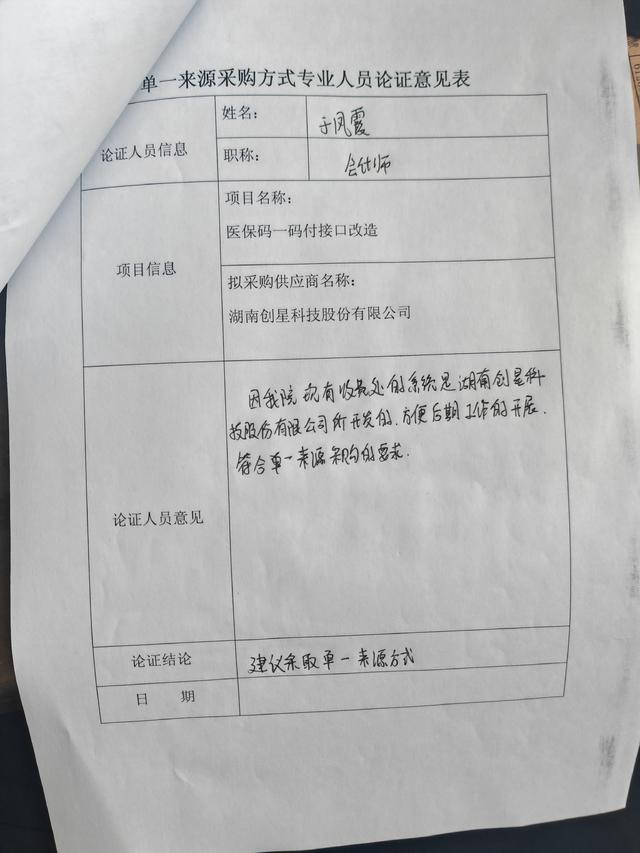 单一来源采购方式专业人员论证意见表
论证人员信息
姓名：
于凤霞
职称：
会计师
项目信息
项目名称：
医保码一码付接口改造
拟采购供应商名称：
湖南创星科技股份有限公司
论证人员意见
因我院现有收费处的系统是湖南创星科
技股份有限公司所开发的，方便后期工作的开展，
符合单一来源采购的要求．
论证结论
建议采取单一来源方式
日 期